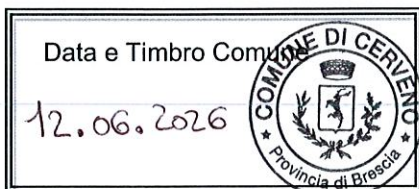 Data e Timbro Comune
12.06.2026
COMUNE DI CERVENO
Provincia di Brescia